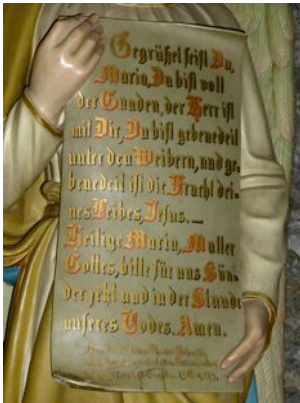 Gegrüßet seist Du,
Maria, Du bist voll
der Gnaden, der Herr ist
mit Dir, Du bist gebenedeit
unter den Weibern, und ge-
benedeit ist die Frucht dei-
nes Leibes, Jesus. —
Heilige Maria, Mutter
Gottes, bitte für uns Sün-
der jetzt und in der Stunde
unseres Todes. Amen.